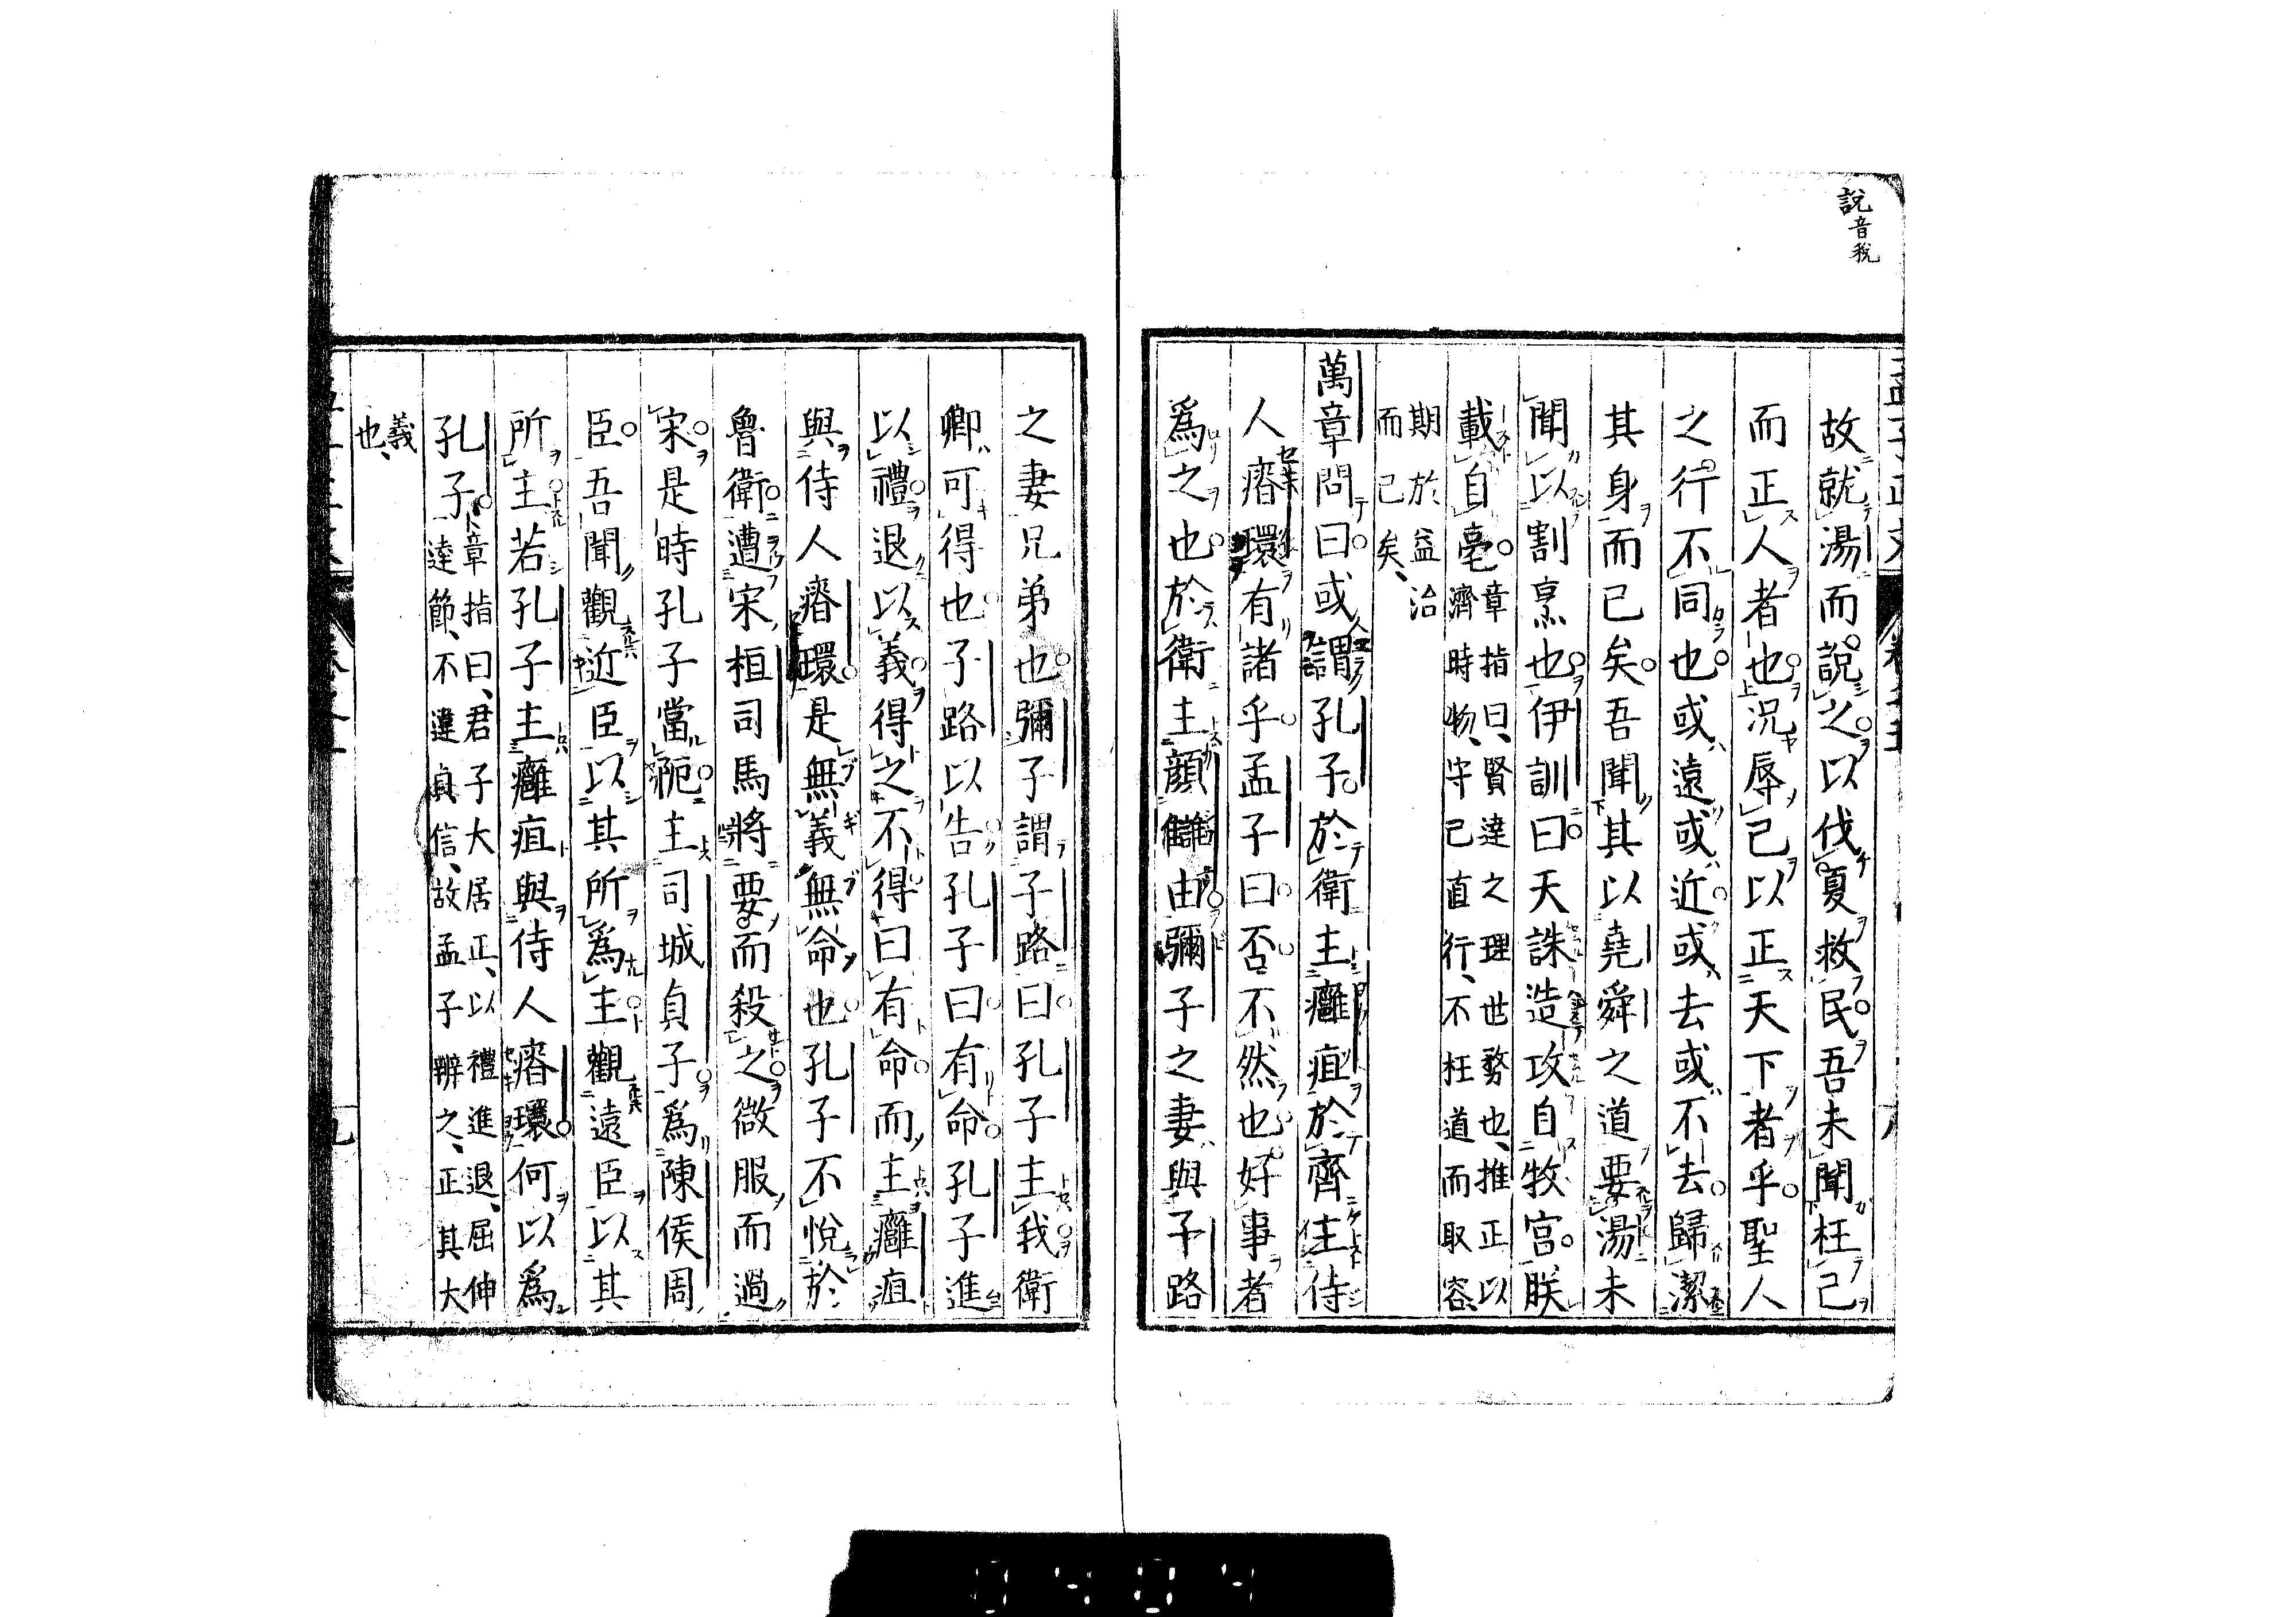 說音稅
故就湯而說之以伐夏救民吾未聞枉己
而正人者也況辱己以正天下者乎聖人
之行不同也或遠或近或去或不去歸潔
其身而已矣吾聞其以堯舜之道要湯未
聞以割烹也伊訓曰天誅造攻自牧宮朕
載自亳章指曰、賢達之理世務也、推正以
濟時物、守己直行、不枉道而取容、
期於益治
而已矣、
萬章問曰或謂孔子於衛主癰疽於齊主侍
人瘠環有諸乎孟子曰否不然也好事者
為之也於衛主顏讎由彌子之妻與子路
之妻兄弟也彌子謂子路曰孔子主我衛
卿可得也子路以告孔子曰有命孔子進
以禮退以義得之不得曰有命而主癰疽
與侍人瘠環是無義無命也孔子不悅於
魯衛遭宋桓司馬將要而殺之微服而過
宋是時孔子當阨主司城貞子為陳侯周
臣吾聞觀近臣以其所為主觀遠臣以其
所主若孔子主癰疽與侍人瘠環何以為
孔子章指曰、君子大居正、以禮進退、屈伸
達節、不違貞信、故孟子辨之、正其大
義
也、